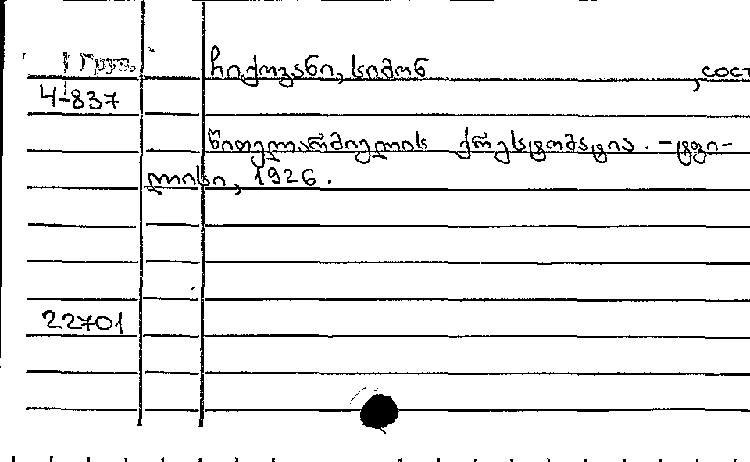 Груз. ჩიქოვანი, სიმონ, сост
4-837
წითელარმიელის ქრესტომატია. - ტფი-
ლისი, 1926.
22701